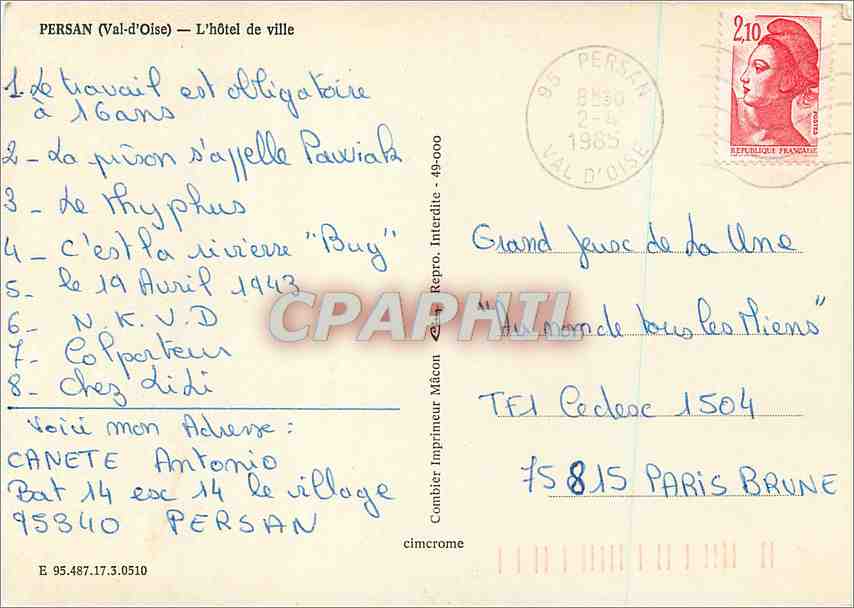 PERSAN (Val-d'Oise) — L'hôtel de ville
1. Le travail est obligatoire
à 16 ans
2 - La prison s'appelle Pawiak
3 - Le thyphus
4 - C'est la rivierre "Bug"
5 - le 19 Avril 1943
6 - N.K.V.D
7 - Colporteur
8 - Chez Lidi
Voici mon Adresse :
CANETE Antonio
Bat 14 esc 14 le village
95340 PERSAN
E 95.487.17.3.0510
Combier Imprimeur Mâcon Repro. Interdite - 49-000
cimcrome
95 PERSAN
2-4
1985
VAL D'OISE
2,10
POSTES
REPUBLIQUE FRANÇAISE
Grand Jeux de La Une
"Au nom de tous les Miens"
TF1 Cedex 1504
75815 PARIS BRUNE
CPAPHIL